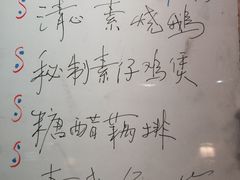 清心素烧鹅
秘制素仔鸡煲
糖醋藕排